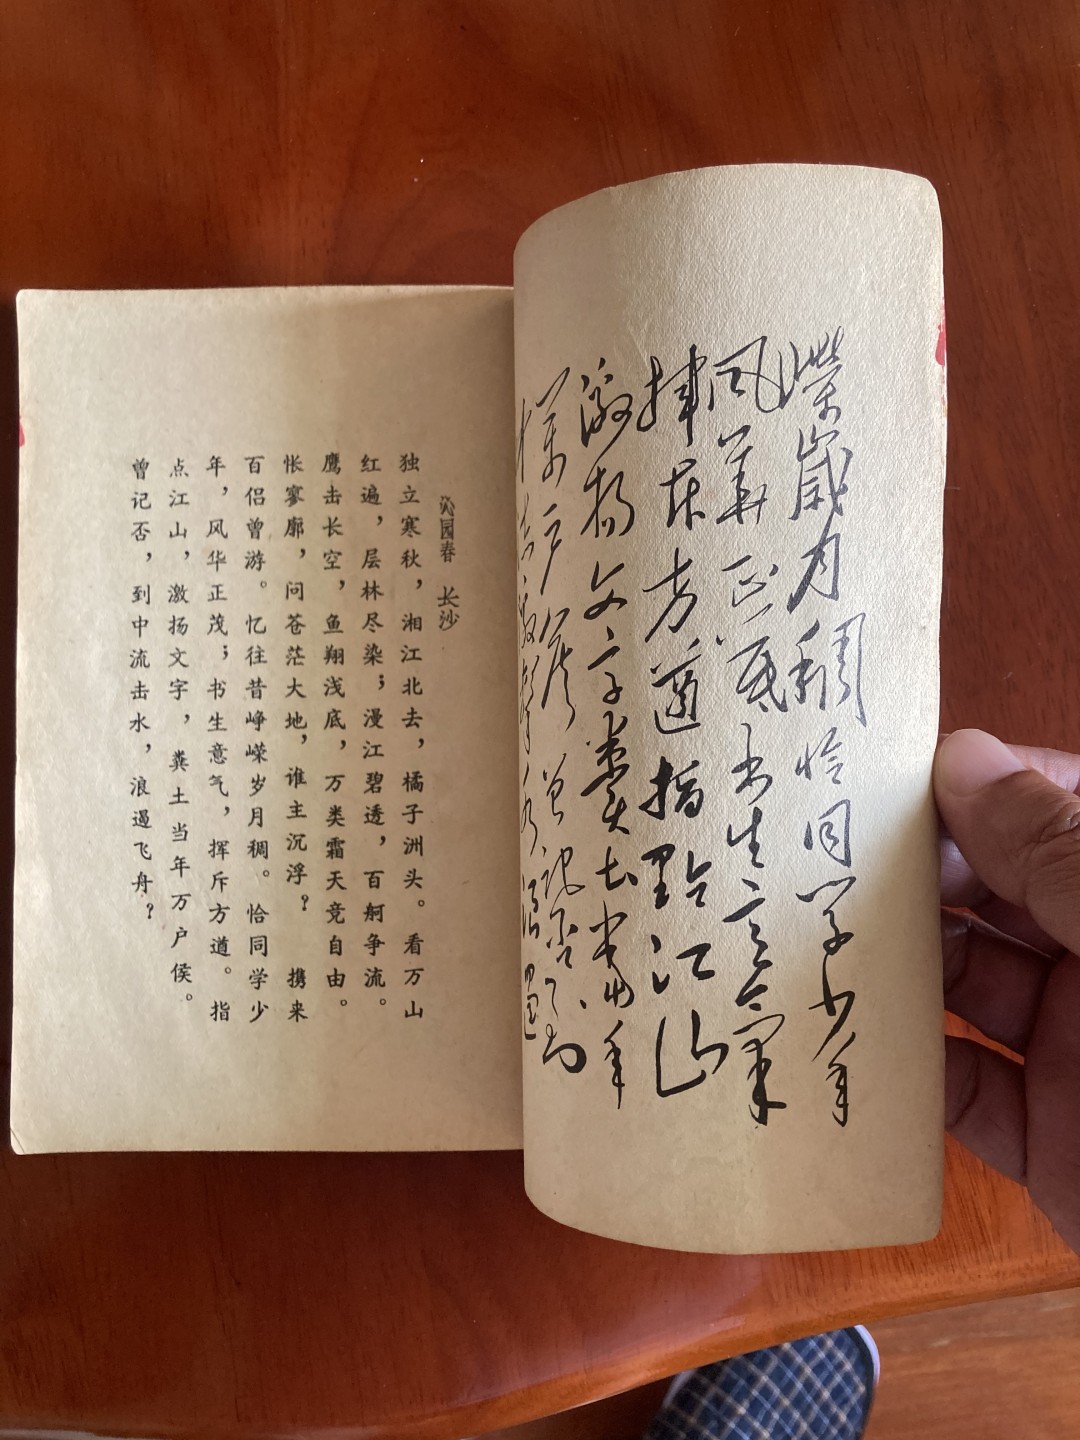 嶸歲月稠恰同学少年
風華正茂书生意氣
揮斥方遒指點江山
激揚文字糞土當年
萬户侯曾記否到
中流擊水浪遏
沁园春 长沙
独立寒秋，湘江北去，橘子洲头。看万山
红遍，层林尽染；漫江碧透，百舸争流。
鹰击长空，鱼翔浅底，万类霜天竞自由。
怅寥廓，问苍茫大地，谁主沉浮？ 携来
百侣曾游。忆往昔峥嵘岁月稠。恰同学少
年，风华正茂；书生意气，挥斥方遒。指
点江山，激扬文字，粪土当年万户侯。
曾记否，到中流击水，浪遏飞舟？